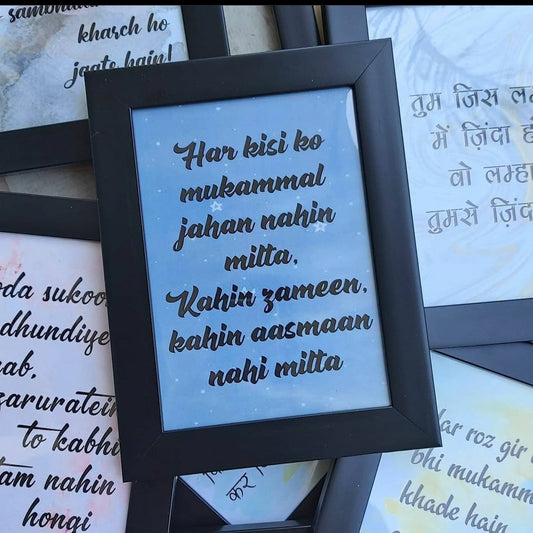 sambhaal
kharch ho
jaate hain!
Har kisi ko
mukammal
jahan nahin
milta,
Kahin zameen,
kahin aasmaan
nahi milta
तुम जिस
में ज़िंदा
वो लम्हा
तुमसे ज़िंदा
sukoon
dhundiye
zaruratein
to kabhi
nahin
hongi
कर
roz gir
bhi mukammal
khade hain